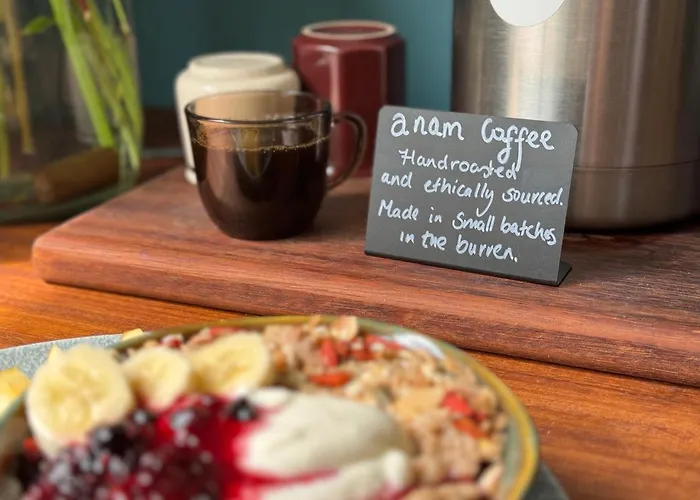 anam Coffee
Handroasted
and ethically sourced.
Made in Small batches
in the burren.